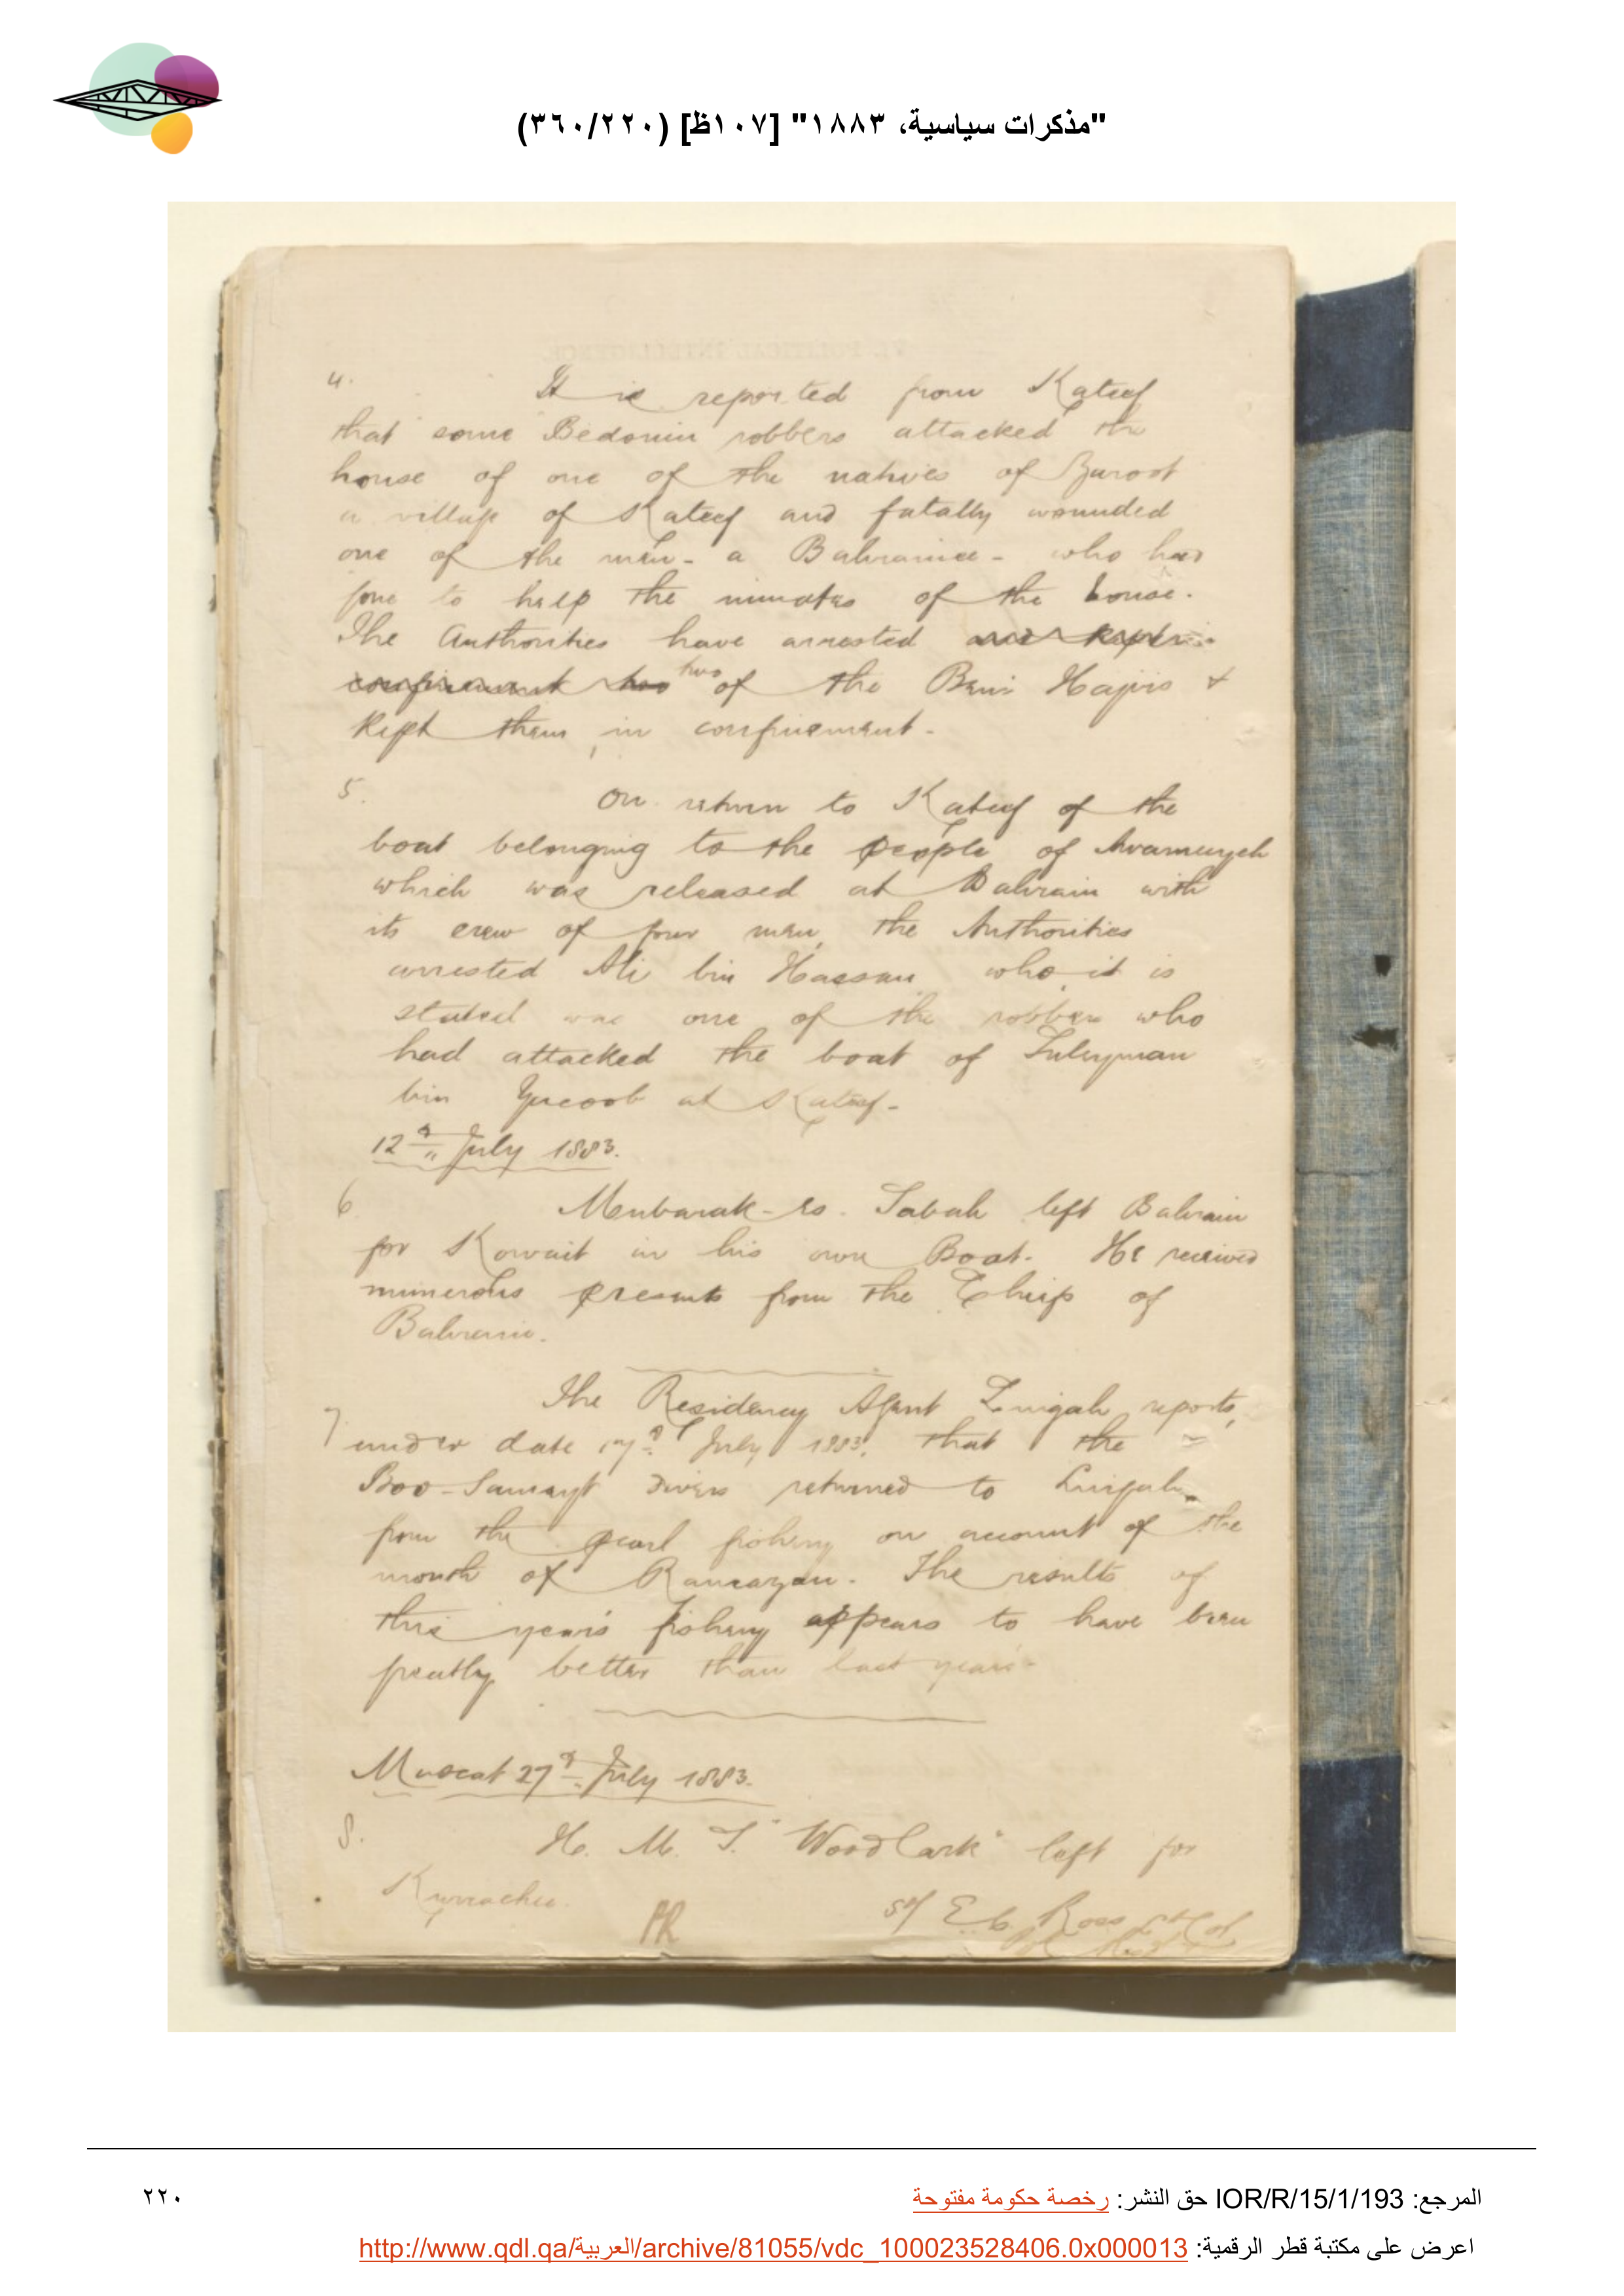 "مذكرات سياسية، ١٨٨٣" [١٠٧ظ] (٣٦٠/٢٢٠)
4. It is reported from Kateef
that some Bedouin robbers attacked the
house of one of the natives of
a village of Kateef and fatally wounded
one of the men - a Bahrainee - who had
gone to help the inmates of the house.
The Authorities have arrested and kept in
confinement two two of the Beni Hajris &
kept them in confinement.
5. On return to Kateef of the
boat belonging to the people of
which was released at Bahrain with
its crew of four men, the Authorities
arrested Ali bin Hassan who it is
stated was one of the robbers who
had attacked the boat of Suleyman
bin Yacoob at Kateef.
12th July 1883.
6. Mubarak-es-Sabah left Bahrain
for Kowait in his own Boat. He received
numerous presents from the Chief of
Bahrein.
7. The Residency Agent Lingah reports,
under date 17th July 1883, that the
Boo-Samayt Divers returned to Lingah
from the pearl fishing on account of the
month of Ramazan. The results of
this year's fishing appears to have been
greatly better than last year's.
Muscat 27th July 1883.
8. H. M. S. "Woodlark" left for
Kurrachee.
Sd/ E. C. Ross Lt Col
المرجع: IOR/R/15/1/193 حق النشر: رخصة حكومة مفتوحة
٢٢٠
اعرض على مكتبة قطر الرقمية: http://www.qdl.qa/العربية/archive/81055/vdc_100023528406.0x000013